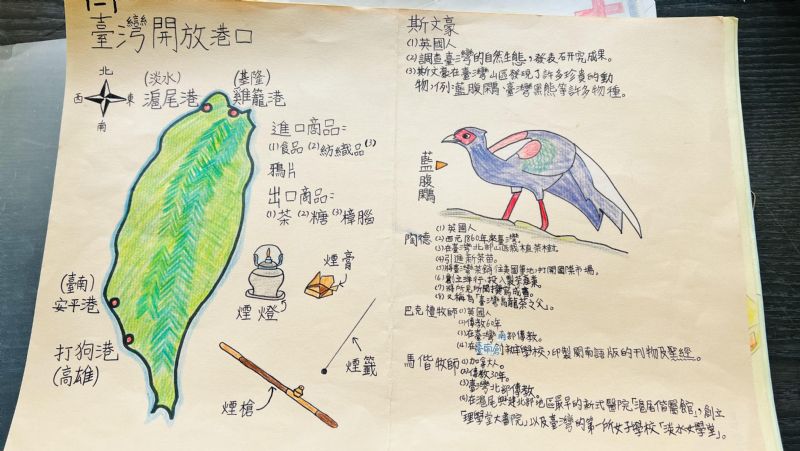 (一)
臺灣開放港口
北
西 東
南
(淡水)
滬尾港
(基隆)
雞籠港
進口商品:
(1)食品(2)紡織品(3)
鴉片
出口商品:
(1)茶(2)糖(3)樟腦
(臺南)
安平港
打狗港
(高雄)
煙燈
煙膏
煙籤
煙槍
斯文豪
(1)英國人
(2)調查臺灣的自然生態,發表研究成果。
(3)斯文豪在臺灣山區發現了許多珍貴的動
物,例:藍腹鷴、臺灣黑熊等許多物種。
藍腹鷴
陶德
(1)英國人
(2)西元1860年來臺灣。
(3)在臺灣北部山區栽植茶樹。
(4)引進新茶苗。
(5)將臺灣茶銷往美國等地,打開國際市場。
(6)創立洋行,投入製茶產業。
(7)將所見所聞撰寫成書。
(8)又稱為「臺灣烏龍茶之父」。
巴克禮牧師
(1)英國人
(2)傳教60年
(3)在臺灣南部傳教。
(4)在臺南創
學校,印製閩南語版的刊物及聖經。
馬偕牧師
(1)加拿大人。
(2)傳教30年。
(3)臺灣北部傳教。
在滬尾興建北部地區最早的新式醫院「滬尾偕醫館」,創立
「理學堂大書院」以及臺灣的第一所女子學校「淡水女學堂」。